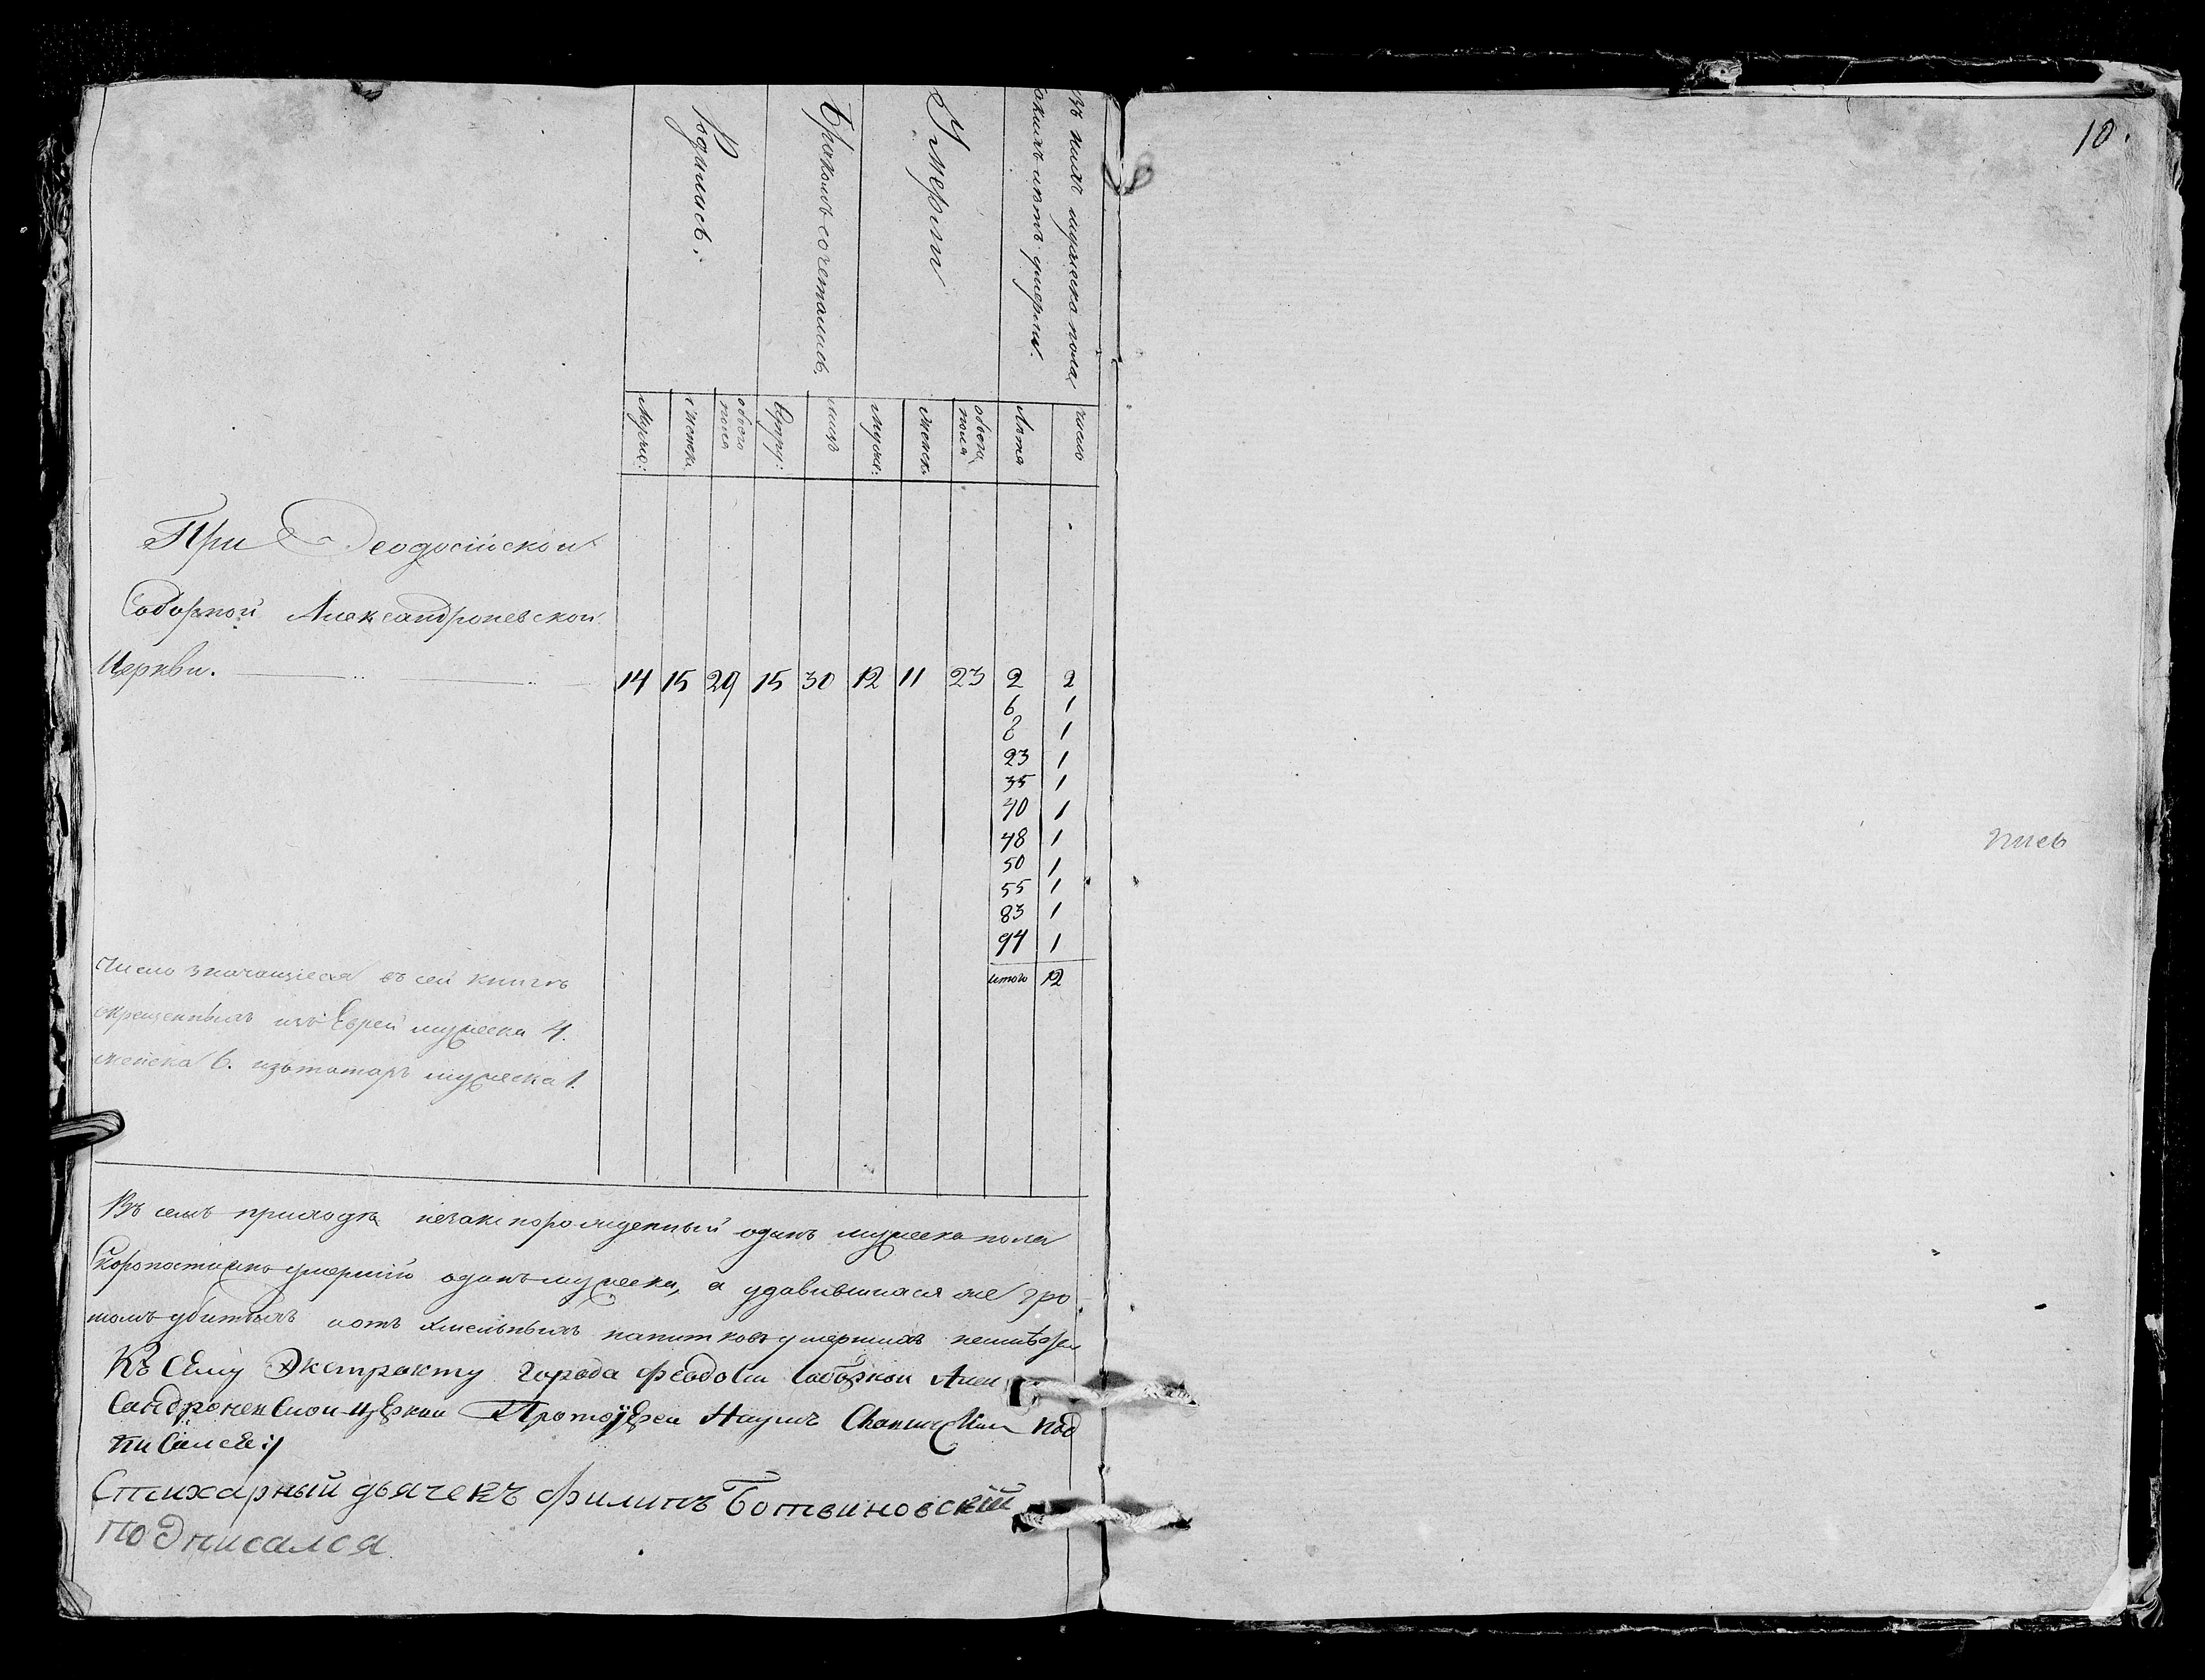 Родились:
Бракомъ сочетались
Умерли
въ какихъ лѣтъ умерли.
изъ нихъ мужеска пола
Мужс:
женска
обоего пола
Супру:
лицъ
Мужс:
женск:
обоего пола
Лѣта
число
При Феодосійской
Соборной Александроневской
Церкви.
14 15 29 15 30 12 11 23 2 2
6 1
8 1
23 1
35 1
40 1
48 1
50 1
55 1
83 1
94 1
итого 12
Число значащіеся въ сей книгѣ
окрещенныхъ изъ Еврей мужеска 4.
женска 6. изъ татаръ мужеска 1.
Въ семъ приходѣ незаконорожденный одинъ мужеска пола
Скоропостижно умершій одинъ мужеска, а удавившихся же гро
момъ убитыхъ и отъ хмельныхъ напитковъ умершихъ
Къ Сему Экстракту города Феодосіи Соборной Алек
сандроневской церкви Протоіерей Наумъ под
писался:/
Стихарный дьячекъ Филипъ Ботвиновскій
подписался
10.